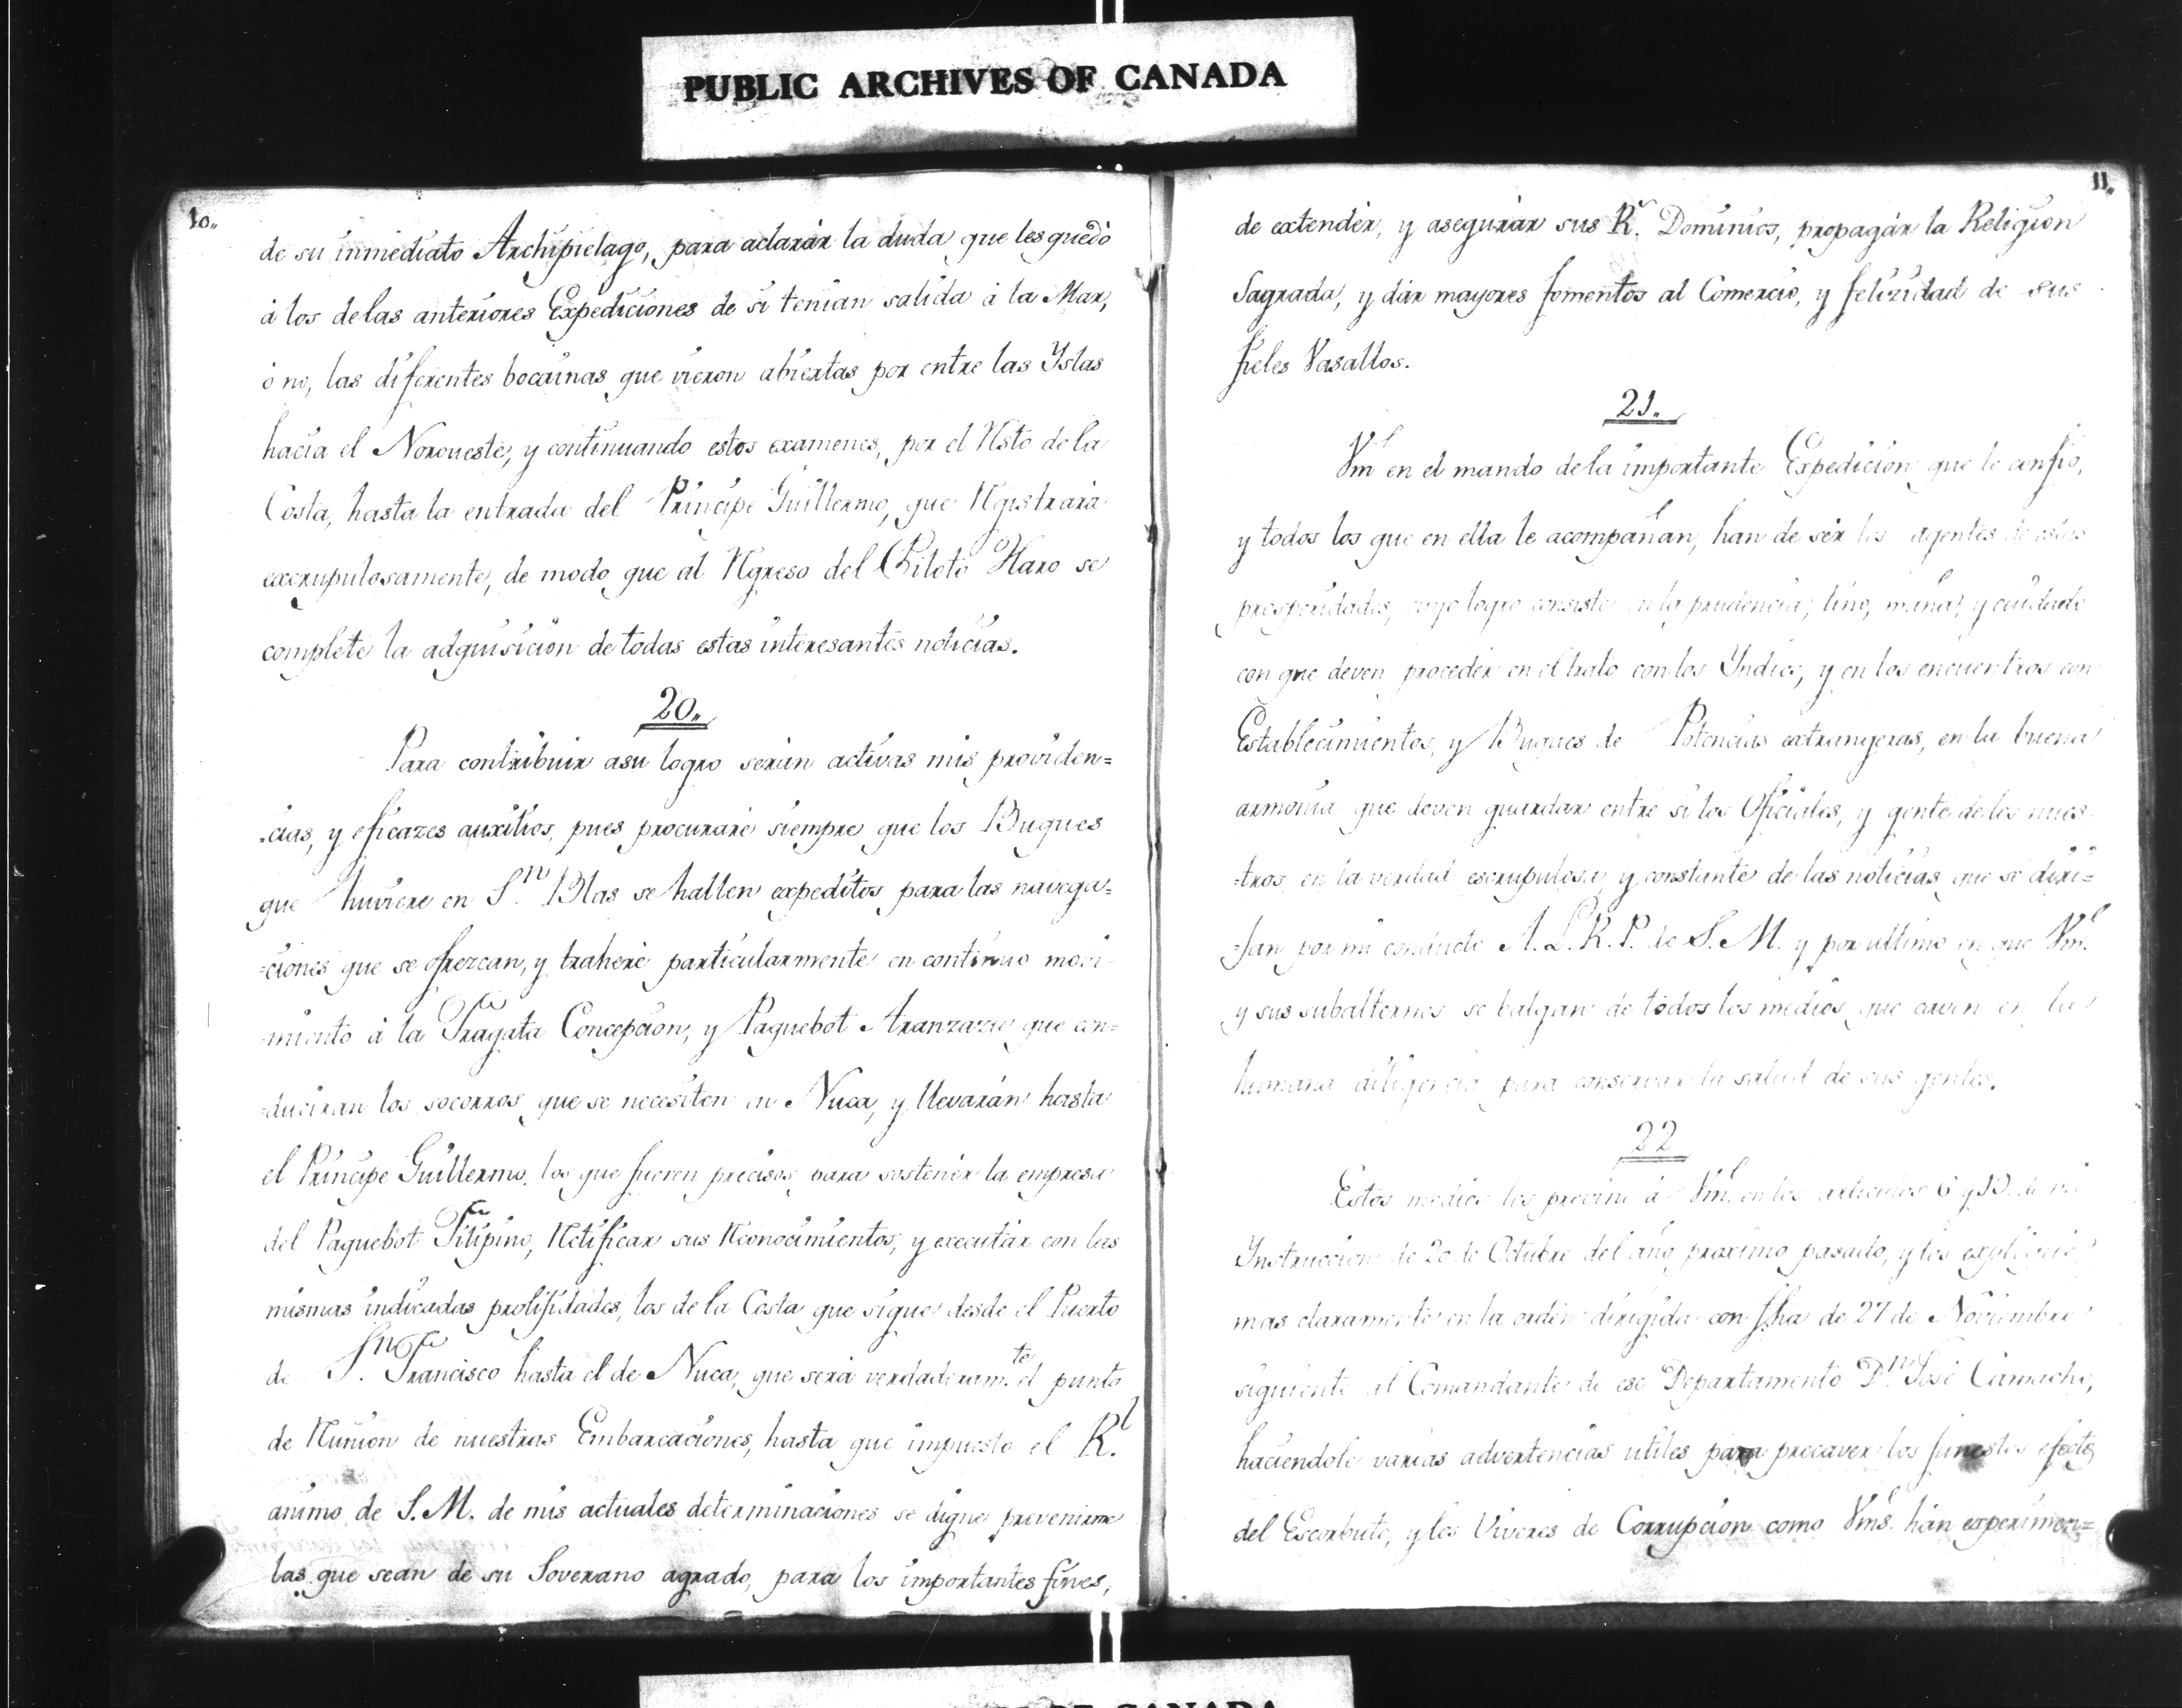 PUBLIC ARCHIVES OF CANADA
10..
de su inmediato Archipielago, para aclarár la duda que les quedò
á los de las anteriores Expediciones de si tenian salida á la Mar,
ó no, las diferentes bocainas que vieron abiertas por entre las Yslas
hacia el Noroueste, y continuando estos examenes, por el Rsto de la
Costa, hasta la entrada del Principe Guillermo, que Rgistrará
excrupulosamente, de modo que al Rgreso del Piloto Haro se
complete la adquisicion de todas estas interesantes noticias.
20..
Para contribuir asu logro serán activas mis providen=
=cias, y eficazes auxilios, pues procuraré siempre que los Buques
que huviere en S.n Blas se hallen expeditos para las navega=
=ciones que se ofrezcan, y traheré particularmente en continuo movi-
=miento á la Fragata Concepcion, y Paquebot Aranzazu que con=
=duciran los socorros que se necesiten en Nuca, y llevarán hasta
el Principe Guillermo los que fueren precisos para sostenér la empresa
del Paquebot Filipino, Rctificar sus Rconocimientos, y executár con las
mismas indicadas prolifidades, los de la Costa que sigue desde el Puerto
de S.n Francisco hasta el de Nuca, que será verdaderam.te el punto
de Runion de nuestras Embarcaciones, hasta que impuesto el R.l
animo de S. M. de mis actuales determinaciones se digne prevenirme
las que sean de su Soverano agrado, para los importantes fines,
11..
de extendér, y asegurár sus R.s Dominios, propagár la Religion
Sagrada, y dár mayores fomentos al Comercio, y felizidad de sus
fieles Vasallos.
21..
Vm.d en el mando de la importante Expedicion que le confio,
y todos los que en ella le acompañan, han de sér los agentes de estas
prosperidades, cuyo logro consiste en la prudencia, tino, maña, y cuidado
con que deven procedér en el trato con los Yndios, y en los encuentros con
Establecimientos, y Buques de Potencias extrangeras, en la buena
armonia que deven guardar entre si los Oficiales, y gente de los nues
=tros, en la verdad escrupulosa, y constante de las noticias que se diri=
=jan por mi conducto A. L. R. P. de S. M. y por ultimo en que Vm.d
y sus subalternos se balgan de todos los medios que caven en la
humana diligencia para conservar la salud de sus gentes.
22
Estos medios los previne á Vm.d en los articulos 6 y 19. de mi
Ynstruccion de 20 de Octubre del año proximo pasado, y los expliqué
mas claramente en la orden dirigida con fha de 27 de Noviembre
siguiente al Comandante de ese Departamento D.n José Camacho,
haciendole varias advertencias utiles para precaver los funestos efectos
del Escorbuto, y los Viveres de Corrupcion como Vm.s hán experimen=